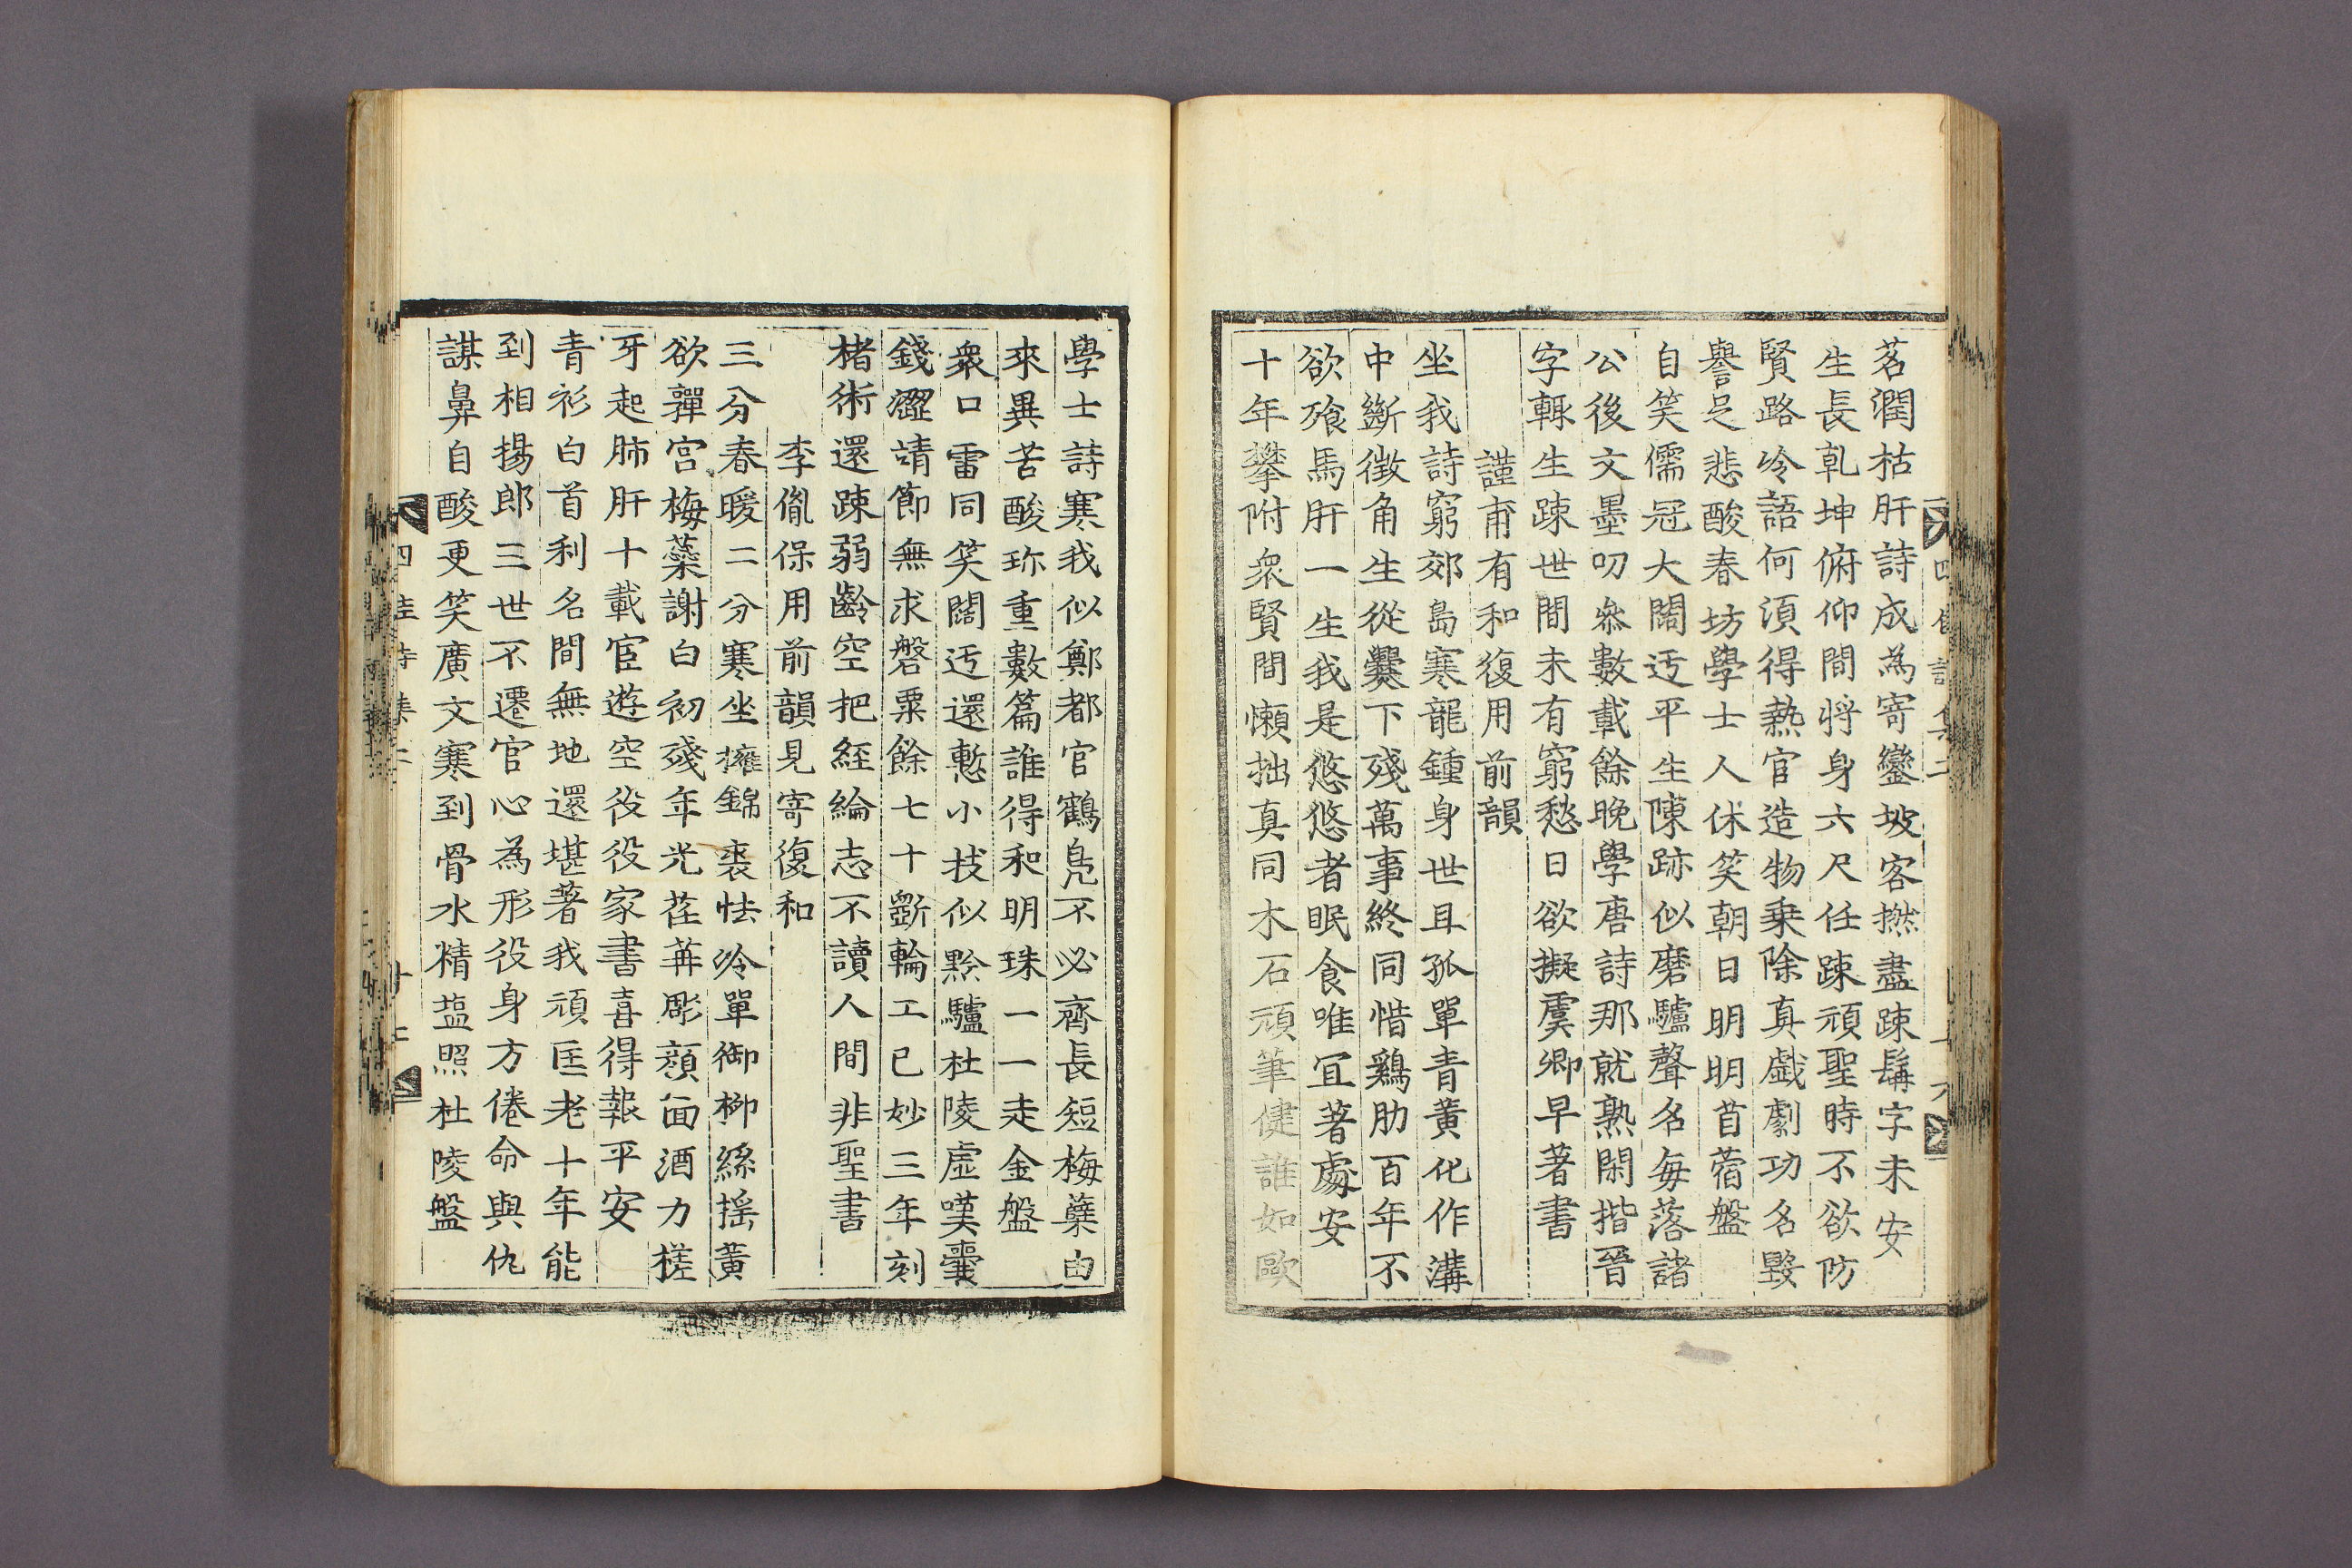 茗潤枯肝詩成為寄鑾坡客撚盡踈髯字未安
生長乹坤俯仰間將身六尺任踈頑聖時不欲防
賢路冷語何湏得熱官造物乗除真戲劇功名毀
譽足悲酸春坊學士人休笑朝日明明苜蓿盤
自笑儒冠大闊迃平生陳跡似磨驢聲名每落諸
公後文墨叨叅數載餘晚學唐詩那就熟閑揩晉
字輙生踈世間未有窮愁日欲擬虞卿早著書
謹甫有和復用前韻
坐我詩窮郊島寒龍鍾身世且孤單青黃化作溝
中斷徴角生從爨下殘萬事終同惜鷄肋百年不
欲飱馬肝一生我是悠悠者眠食唯冝著處安
十年攀附衆賢間懶拙真同木石頑筆健誰如歐
學士詩寒我似鄭都官鶴鳧不必齊長短梅蘂由
來異苦酸珎重數篇誰得和明珠一一走金盤
衆口雷同笑闊迃還慙小技似黔驢杜陵虛嘆囊
錢澀靖節無求磬粟餘七十斵輪工已妙三年刻
楮術還踈弱齡空把経綸志不讀人間非聖書
李胤保用前韻見寄復和
三分春暖二分寒坐擁錦裘怯冷單御柳絲揺黃
欲嚲宫梅蘂謝白初殘年光荏苒彫顔面酒力槎
牙起肺肝十載宦遊空役役家書喜得報平安
青衫白首利名間無地還堪著我頑匡老十年能
到相揚郎三世不遷官心為形役身方倦命與仇
謀鼻自酸更笑廣文寒到骨水精塩照杜陵盤